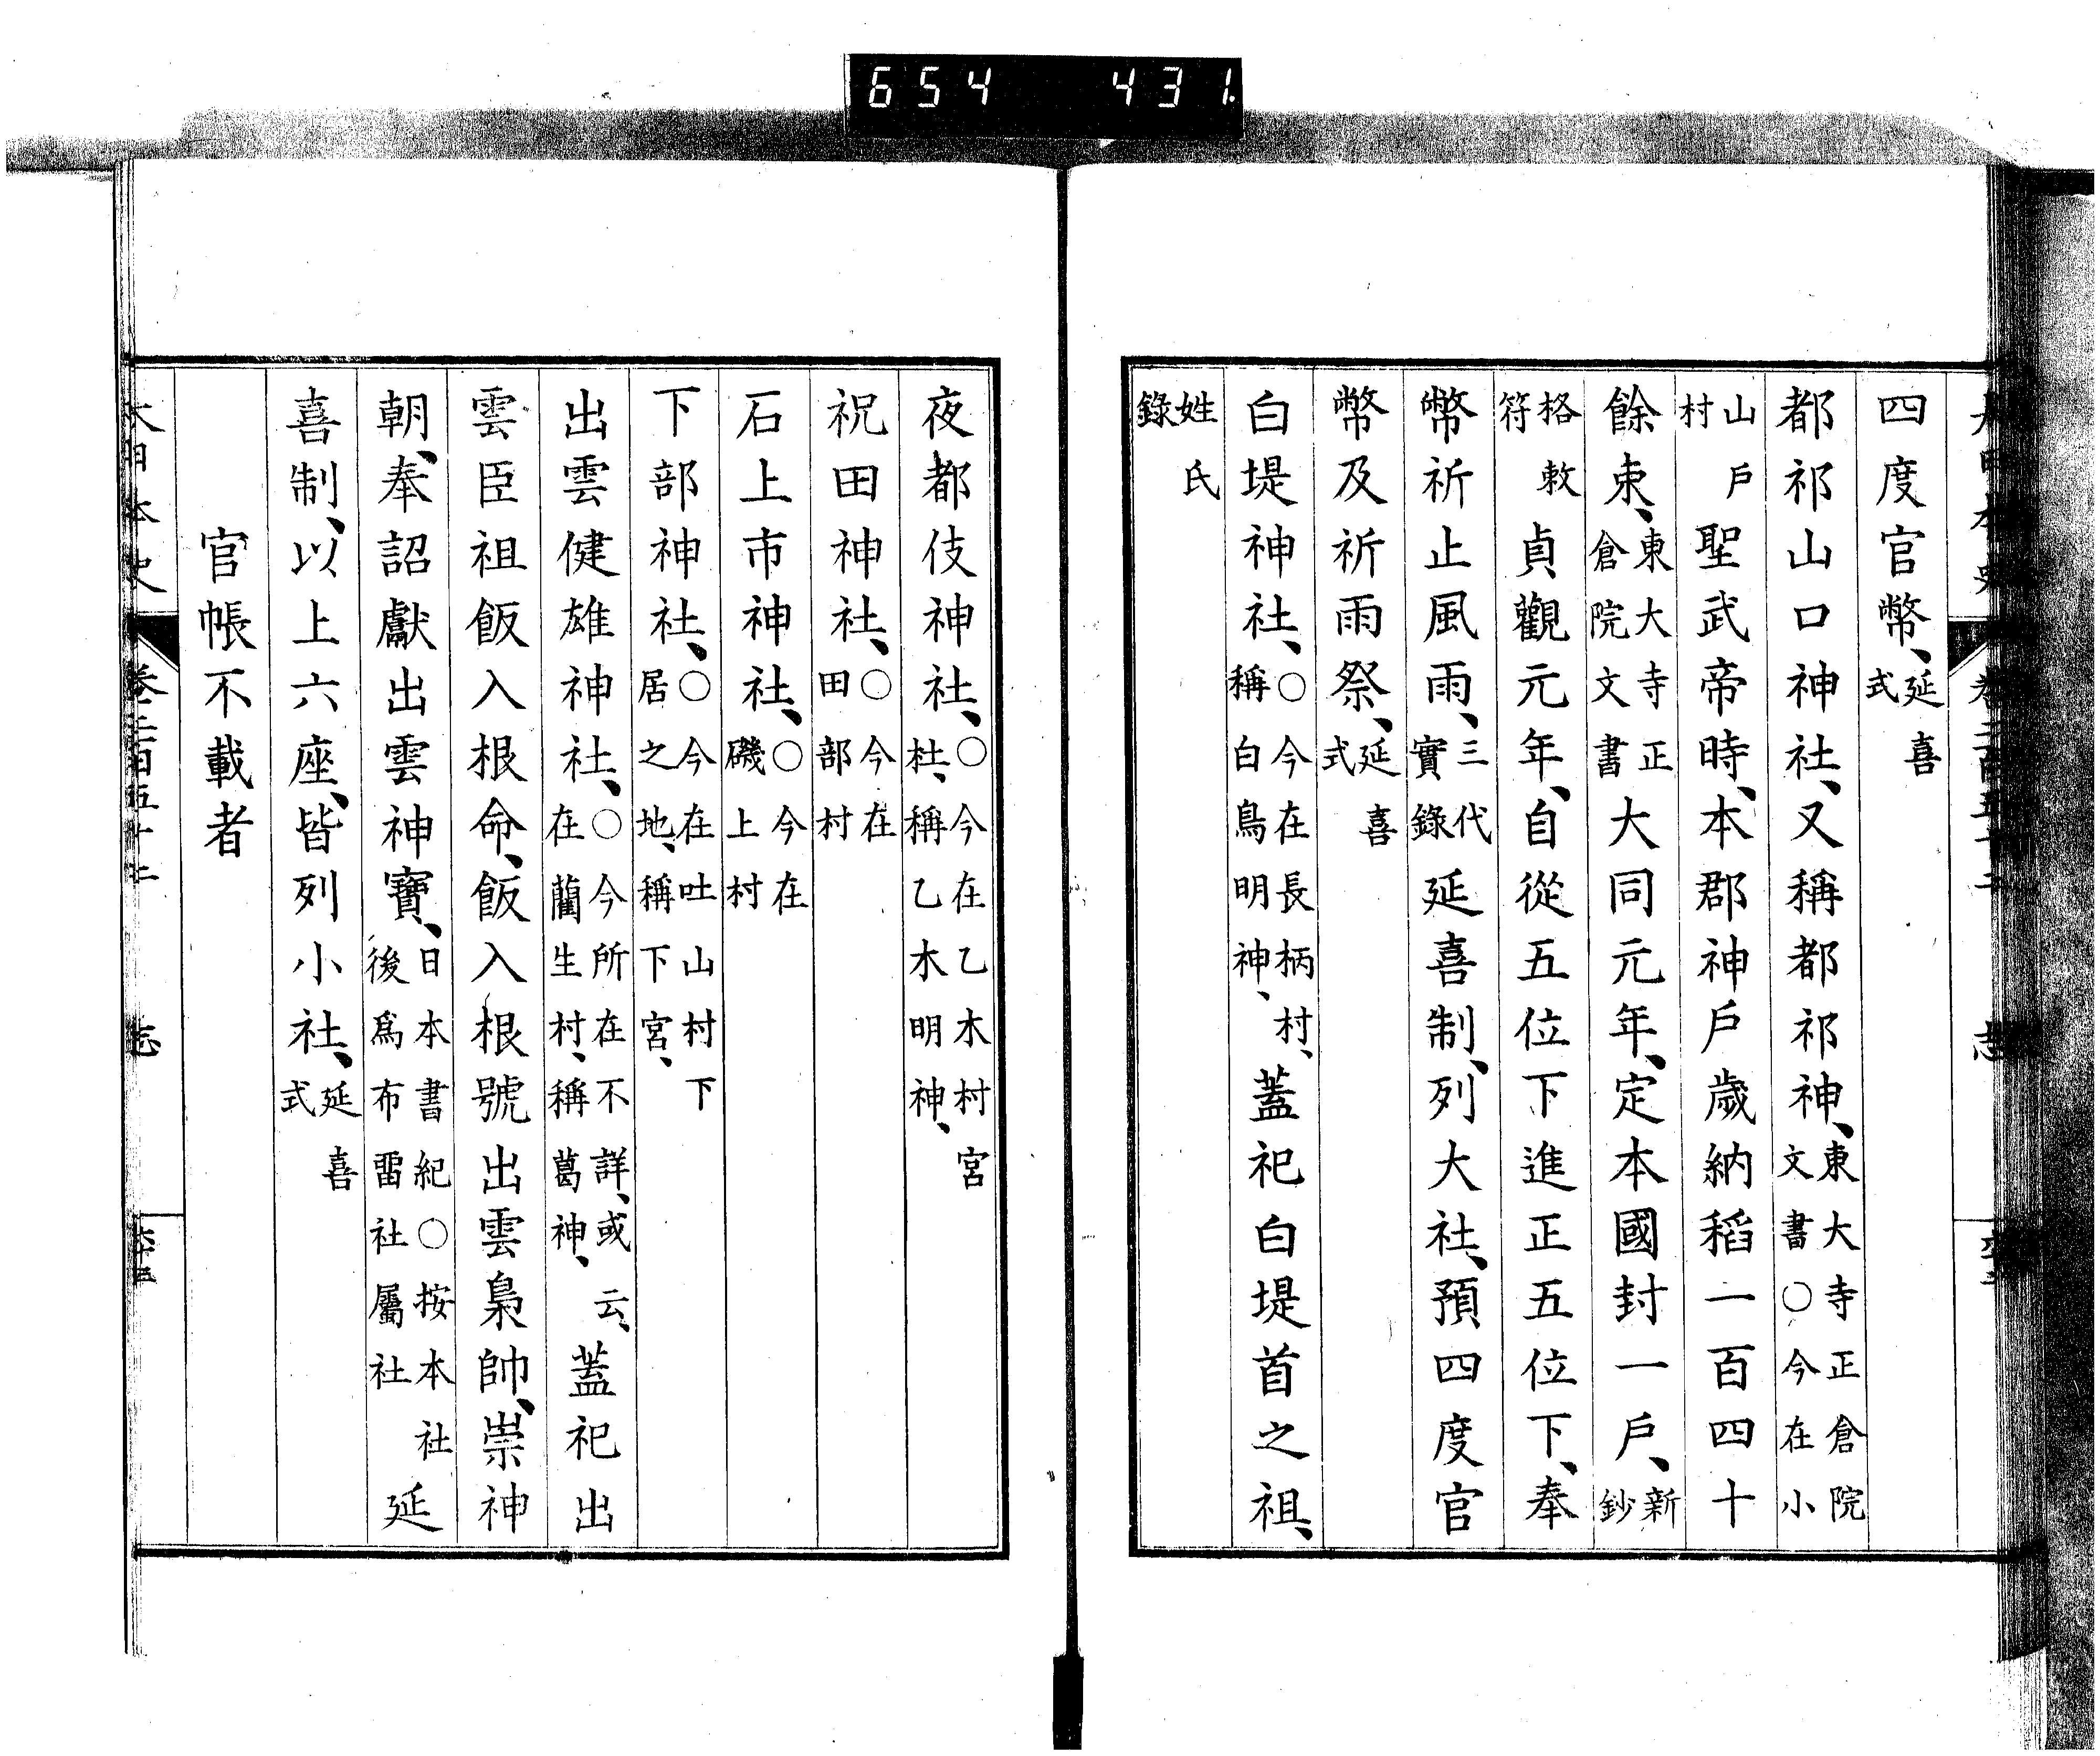 654 431.
四度官幣、延喜式
都祁山口神社、又稱都祁神、東大寺正倉院文書○今在小
山戶村聖武帝時、本郡神戶歲納稻一百四十
餘束、東大寺正倉院文書大同元年、定本國封一戶、新鈔
格敕符貞觀元年、自從五位下進正五位下、奉
幣祈止風雨、三代實錄延喜制、列大社、預四度官
幣及祈雨祭、延喜式
白堤神社、○今在長柄村、稱白鳥明神、蓋祀白堤首之祖、
姓氏錄
夜都伎神社、○今在乙木村宮杜、稱乙木明神、
祝田神社、○今在田部村
石上市神社、○今在磯上村
下部神社、○今在吐山村下居之地、稱下宮、
出雲健雄神社、○今所在不詳、或云、在藺生村、稱葛神、蓋祀出
雲臣祖飯入根命、飯入根號出雲梟帥、崇神
朝、奉詔獻出雲神寶、日本書紀○按本社後爲布留社屬社延
喜制、以上六座、皆列小社、延喜式
官帳不載者
大日本史 卷二百五十二 志 六十三